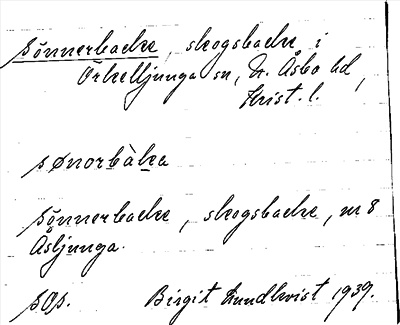 Sönnerbacke, skogsbacke i
Örkelljunga sn, N. Åsbo hd,
Krist. l.
sønorbàka
Sönnerbacke, skogsbacke, m 8
Åsljunga.
Birgit Lundkvist 1939.